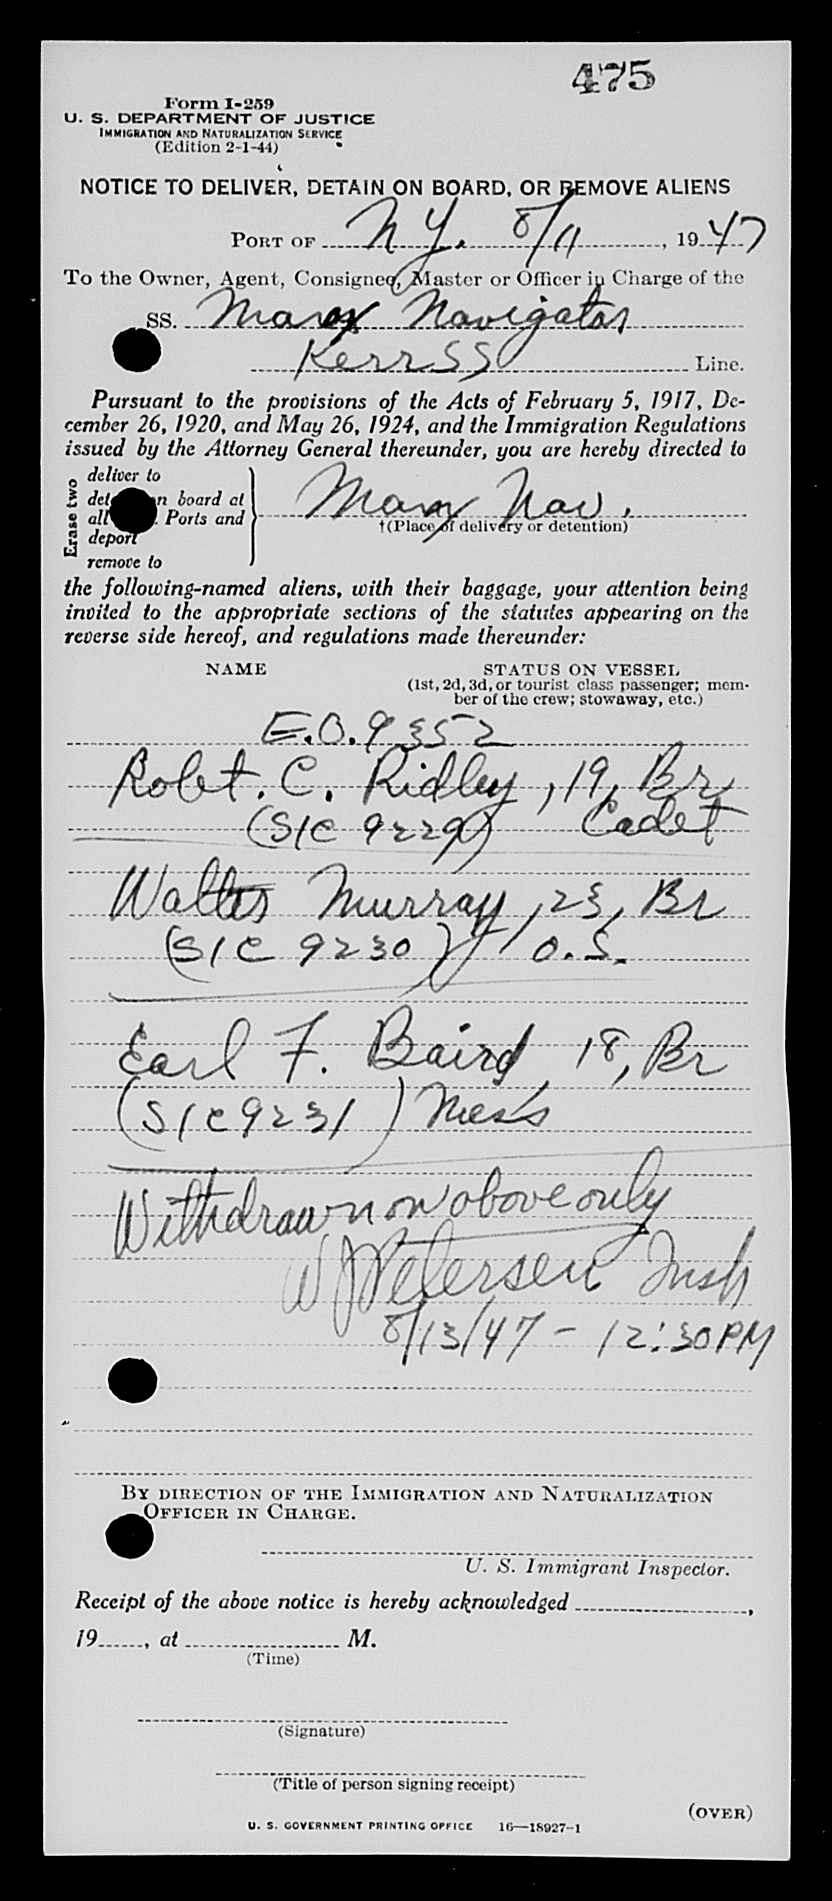 475
Form I-259
U. S. DEPARTMENT OF JUSTICE
IMMIGRATION AND NATURALIZATION SERVICE
(Edition 2-1-44)
NOTICE TO DELIVER, DETAIN ON BOARD, OR REMOVE ALIENS
PORT OF N.Y. 8/11, 1947
To the Owner, Agent, Consignee, Master or Officer in Charge of the
SS. Marx Navigator
Kerr SS Line.
Pursuant to the provisions of the Acts of February 5, 1917, De-
cember 26, 1920, and May 26, 1924, and the Immigration Regulations
issued by the Attorney General thereunder, you are hereby directed to
Erase two
deliver to
on board at
Ports and
deport
remove to
Nav.
†(Place of delivery or detention)
the following-named aliens, with their baggage, your attention being
invited to the appropriate sections of the statutes appearing on the
reverse side hereof, and regulations made thereunder:
NAME STATUS ON VESSEL
(1st, 2d, 3d, or tourist class passenger; mem-
ber of the crew; stowaway, etc.)
E.O. 9352
Robt. C. Ridley, 19, Br
(S/C 9229) Cadet
Walter Murray, 23, Br
(S/C 9230) O.S.
Earl F. Baird, 18, Br
(S/C 9231) Mess
Withdrawn on above only
W J Petersen Insp
8/13/47 - 12:30 PM
BY DIRECTION OF THE IMMIGRATION AND NATURALIZATION
OFFICER IN CHARGE.
U. S. Immigrant Inspector.
Receipt of the above notice is hereby acknowledged ,
19 , at M.
(Time)
(Signature)
(Title of person signing receipt)
(OVER)
U. S. GOVERNMENT PRINTING OFFICE 16—18927-1